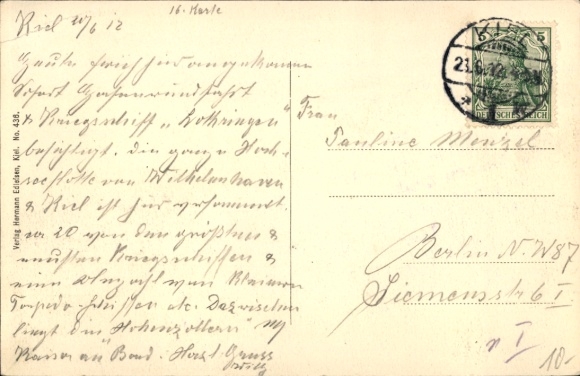 Kiel 20/6 12
16. Karte
Heute früh hier angekommen
Sofort Hafenrundfahrt
& Kriegsschiff „Lothringen"
besichtigt. Die ganze Hoch-
seeflotte von Wilhelmshaven
& Kiel ist hier versammelt.
ca 20 von den größten &
neusten Kriegsschiffen &
eine Anzahl von kleineren
Torpedo-schiffen etc. Dazwischen
liegt die „Hohenzollern"
Kaiser an Bord. Herzl Gruss
Verlag Hermann Edlefsen, Kiel. No. 436.
KIEL
5
DEUTSCHES REICH
Frau
Pauline Menzel
Berlin N.W87
Siemensstr 6 I
I
10-